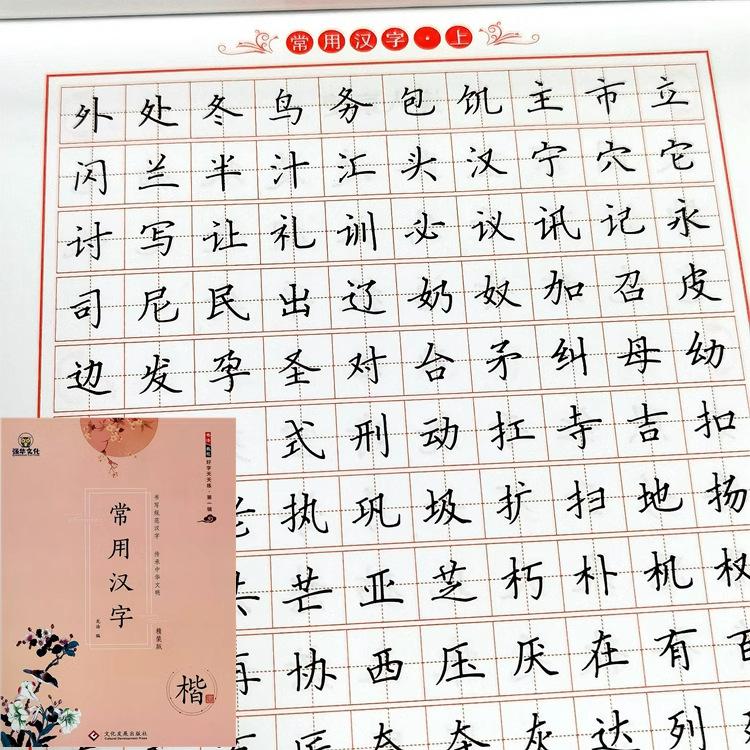 常用汉字·上
外处冬鸟务包饥主市立
闪兰半汁汇头汉宁穴它
讨写让礼训必议讯记永
司尼民出辽奶奴加召皮
边发孕圣对台矛纠母幼
式刑动扛寺吉扣
老执巩圾扩扫地扬
共芒亚芝朽朴机权
再协西压厌在有百
夺灰达列
强华文化
好字天天练·第一辑
书写规范汉字 传承中华文明
常用汉字
精装版
楷
文化发展出版社
Cultural Development Press